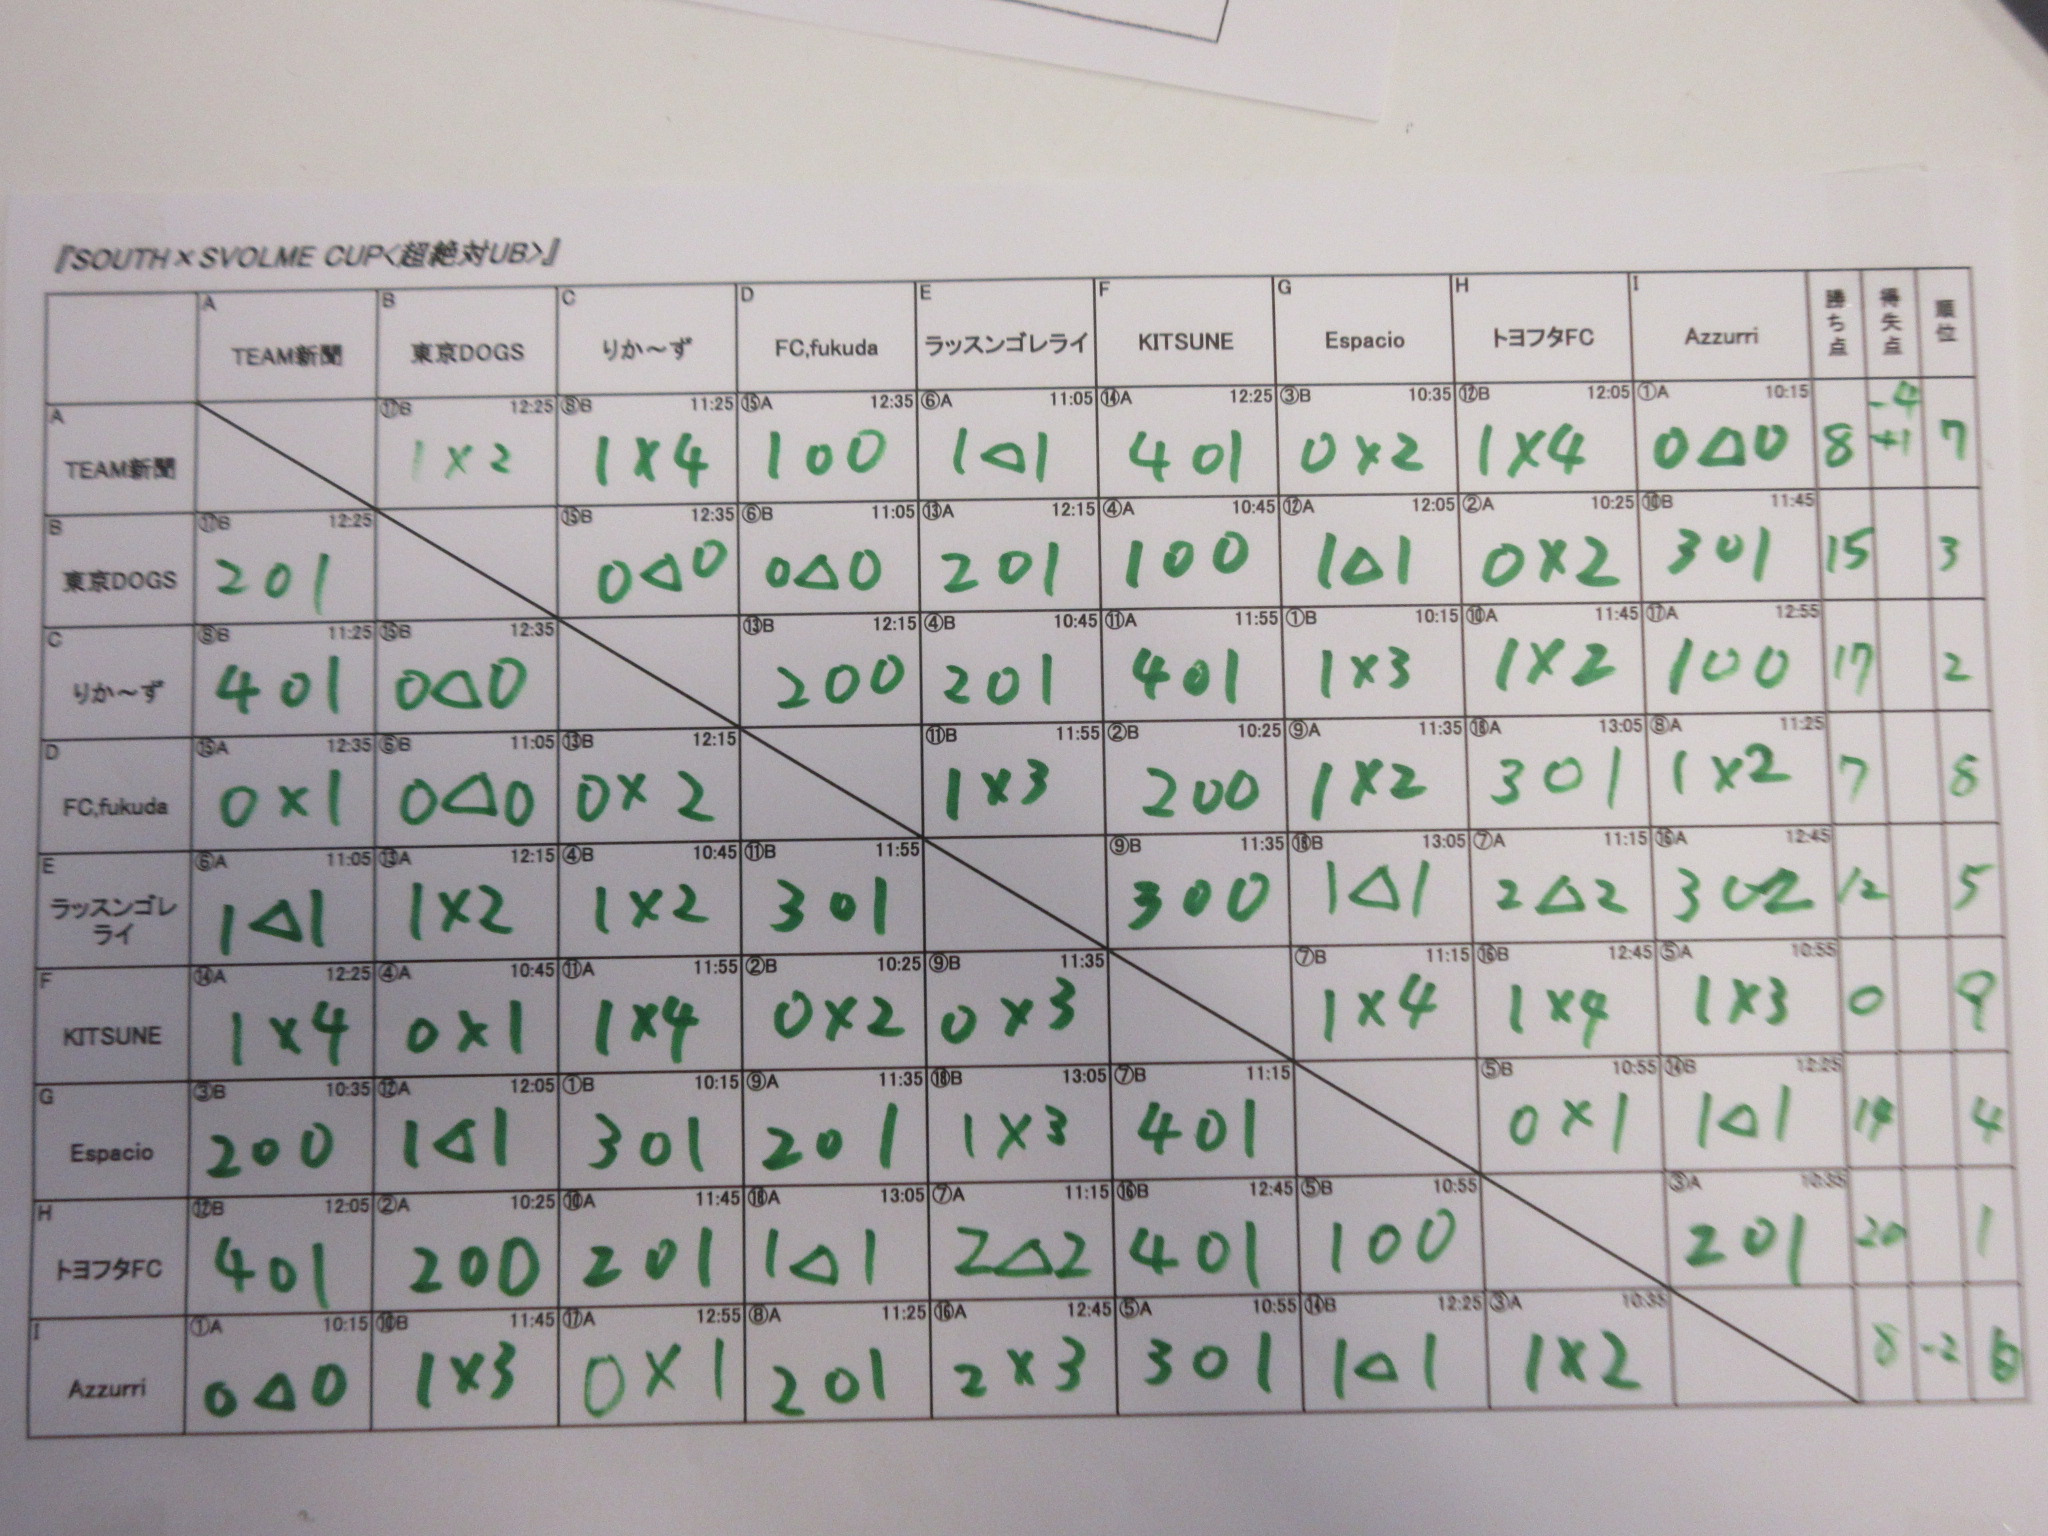 『SOUTH×SVOLME CUP<超絶対UB>』
A B C D E F G H I
TEAM新聞 東京DOGS りか～ず FC,fukuda ラッスンゴレライ KITSUNE Espacio トヨフタFC Azzurri 勝ち点 得失点 順位
A ⑰B 12:25 ⑧B 11:25 ⑮A 12:35 ⑥A 11:05 ⑭A 12:25 ③B 10:35 ⑫B 12:05 ①A 10:15 -4
TEAM新聞 1×2 1×4 1○0 1△1 4○1 0×2 1×4 0△0 8 +1 7
B ⑰B 12:25 ⑮B 12:35 ⑥B 11:05 ⑬A 12:15 ④A 10:45 ⑫A 12:05 ②A 10:25 ⑩B 11:45
東京DOGS 2○1 0△0 0△0 2○1 1○0 1△1 0×2 3○1 15 3
C ⑧B 11:25 ⑮B 12:35 ⑬B 12:15 ④B 10:45 ⑪A 11:55 ①B 10:15 ⑩A 11:45 ⑰A 12:55
りか～ず 4○1 0△0 2○0 2○1 4○1 1×3 1×2 1○0 17 2
D ⑮A 12:35 ⑥B 11:05 ⑬B 12:15 ⑪B 11:55 ②B 10:25 ⑨A 11:35 ⑱A 13:05 ⑧A 11:25
FC,fukuda 0×1 0△0 0×2 1×3 2○0 1×2 3○1 1×2 7 8
E ⑥A 11:05 ⑬A 12:15 ④B 10:45 ⑪B 11:55 ⑨B 11:35 ⑱B 13:05 ⑦A 11:15 ⑯A 12:45
ラッスンゴレ
ライ 1△1 1×2 1×2 3○1 3○0 1△1 2△2 3○2 12 5
F ⑭A 12:25 ④A 10:45 ⑪A 11:55 ②B 10:25 ⑨B 11:35 ⑦B 11:15 ⑯B 12:45 ⑤A 10:55
KITSUNE 1×4 0×1 1×4 0×2 0×3 1×4 1×4 1×3 0 9
G ③B 10:35 ⑫A 12:05 ①B 10:15 ⑨A 11:35 ⑱B 13:05 ⑦B 11:15 ⑤B 10:55 ⑭B 12:25
Espacio 2○0 1△1 3○1 2○1 1×3 4○1 0×1 1△1 14 4
H ⑫B 12:05 ②A 10:25 ⑩A 11:45 ⑱A 13:05 ⑦A 11:15 ⑯B 12:45 ⑤B 10:55 ③A 10:35
トヨフタFC 4○1 2○0 2○1 1△1 2△2 4○1 1○0 2○1 20 1
I ①A 10:15 ⑩B 11:45 ⑰A 12:55 ⑧A 11:25 ⑯A 12:45 ⑤A 10:55 ⑭B 12:25 ③A 10:35
Azzurri 0△0 1×3 0×1 2○1 2×3 3○1 1△1 1×2 8 -2 6